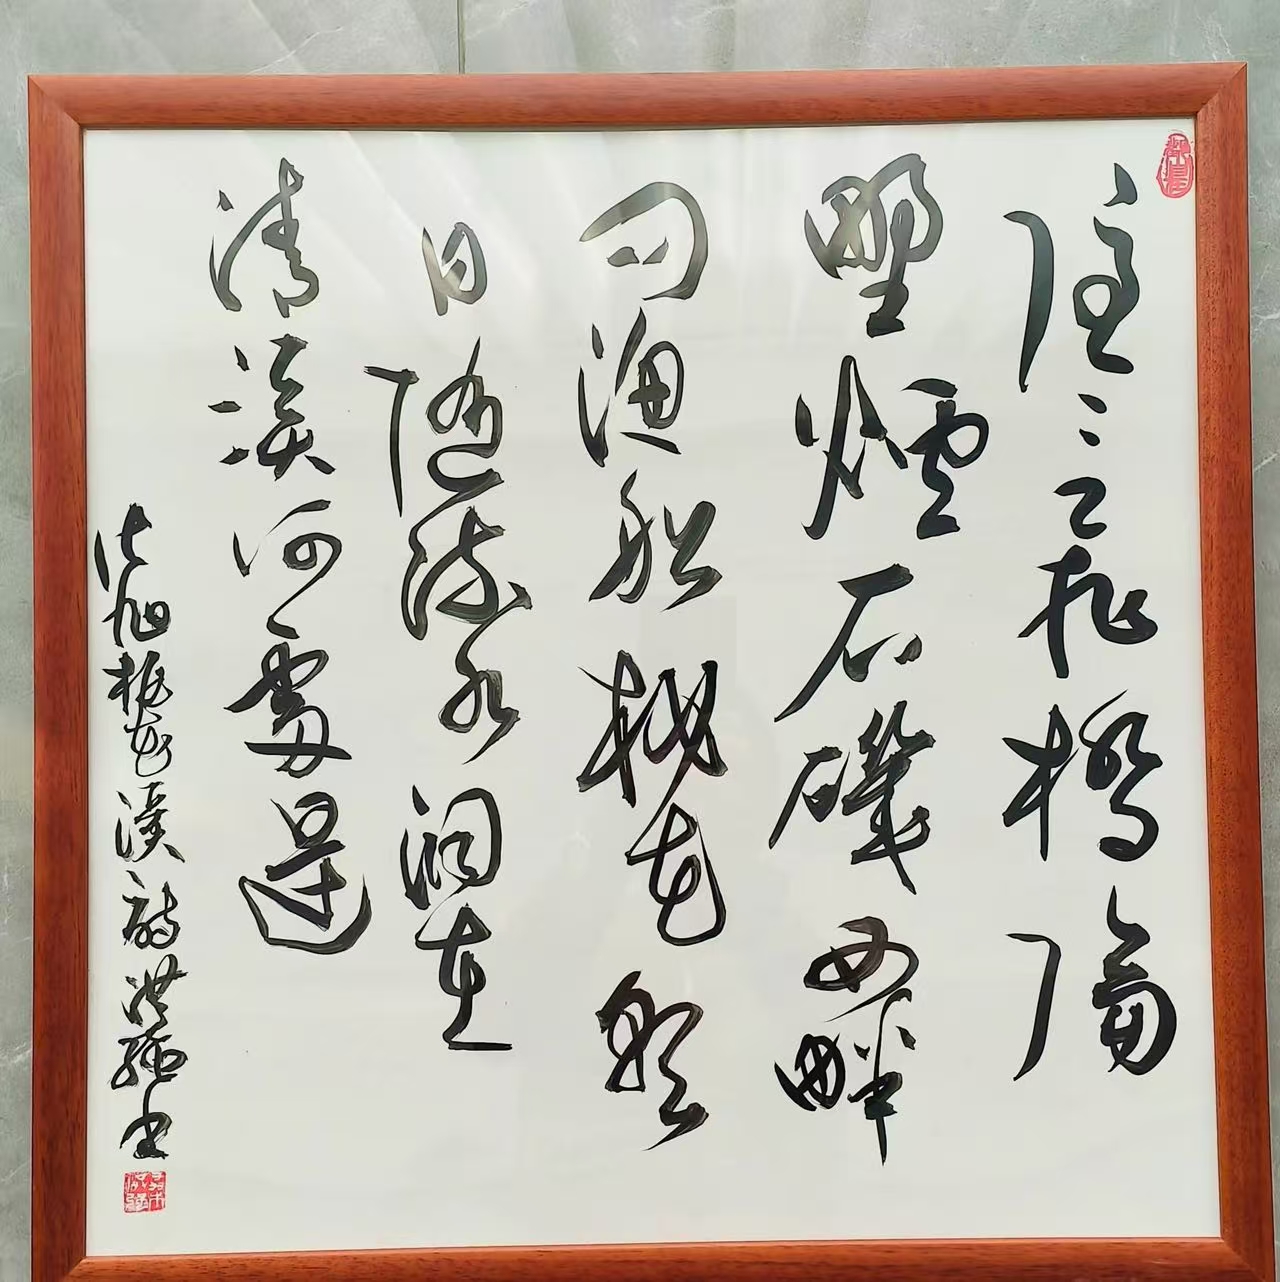 隱〻飛橋隔
野煙石磯西畔
问漁船桃花盡
日隨流水洞在
清溪何處邊
张旭桃花溪诗洪书